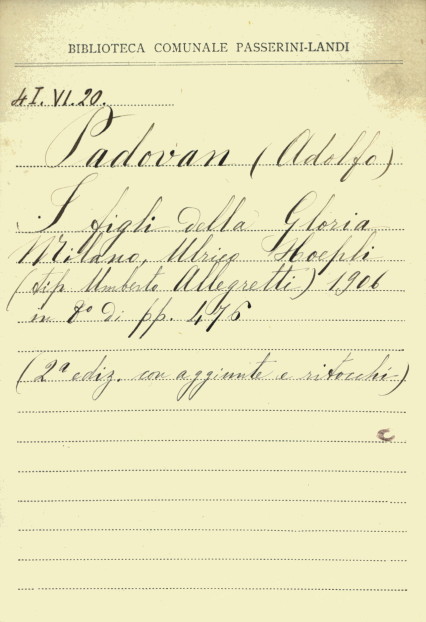 BIBLIOTECA COMUNALE PASSERINI-LANDI
4I. VI. 20.
Padovan (Adolfo)
I figli della Gloria
Milano, Ulrico Hoepli
(tip Umberto Allegretti) 1906
in 8° di pp. 476
(2ª ediz. con aggiunte e ritocchi)